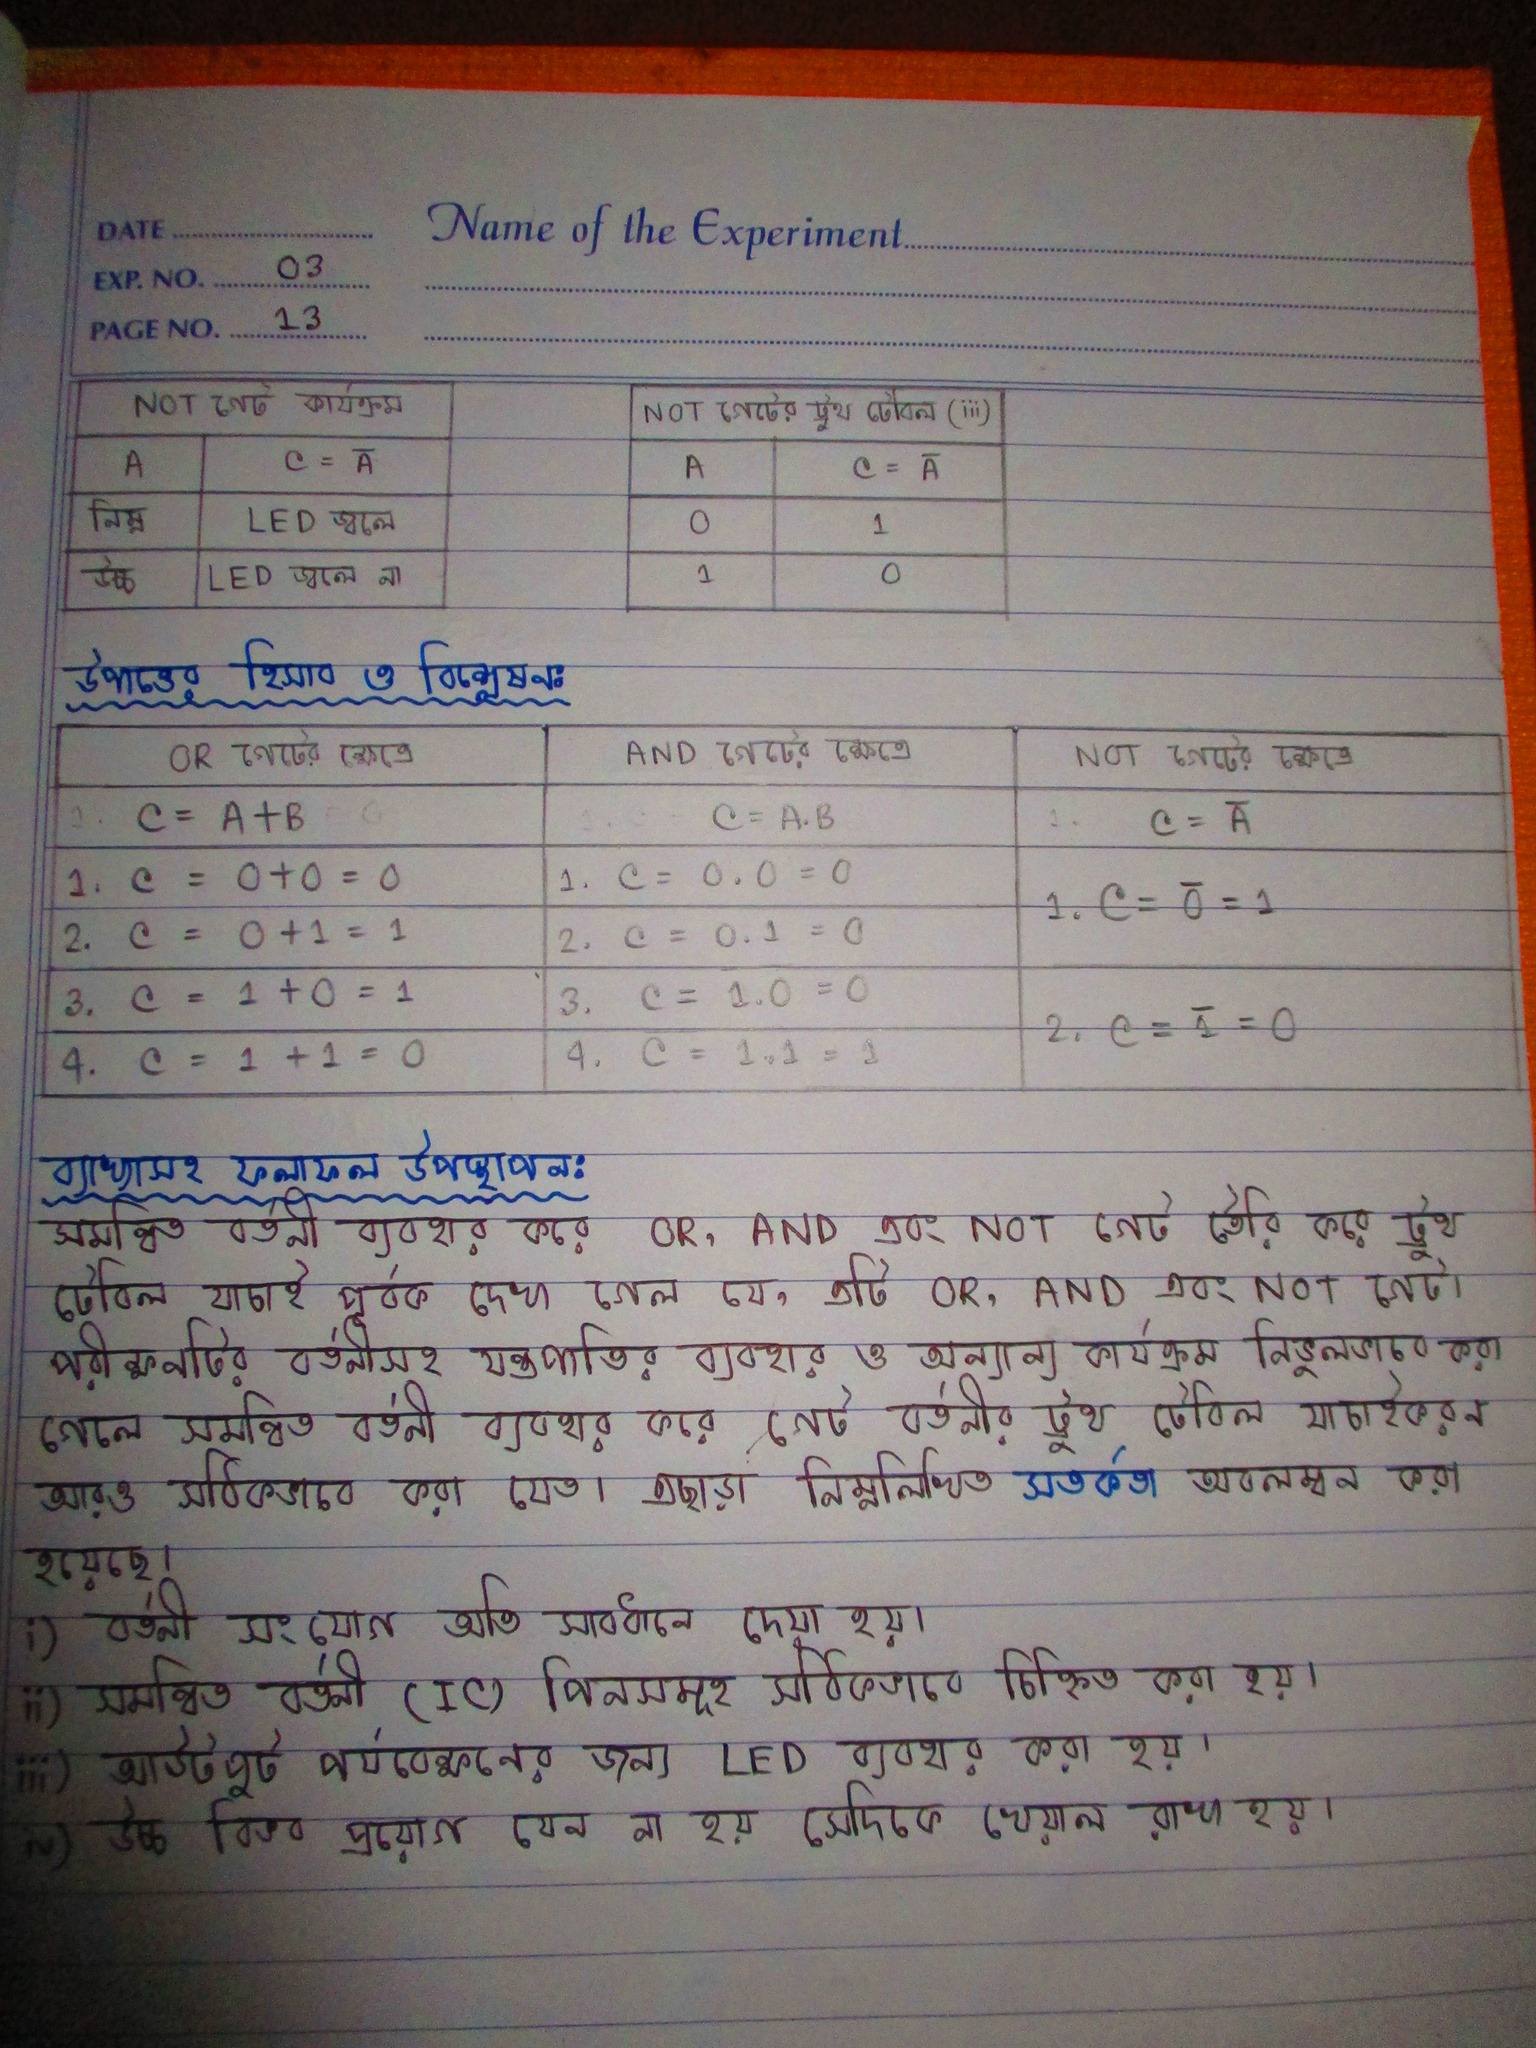 DATE Name of the Experiment
EXP. NO. 03
PAGE NO. 13
NOT গেট কার্যক্রম
A C = A̅
নিম্ন LED জ্বলে
উচ্চ LED জ্বলে না
NOT গেটের ট্রুথ টেবিল (iii)
A C = A̅
0 1
1 0
উপাত্তের হিসাব ও বিশ্লেষনঃ
OR গেটের ক্ষেত্রে AND গেটের ক্ষেত্রে NOT গেটের ক্ষেত্রে
1. C = A+B C = A.B 1. C = A̅
1. C = 0+0 = 0 1. C = 0.0 = 0 1. C = 0̅ = 1
2. C = 0+1 = 1 2. C = 0.1 = 0
3. C = 1+0 = 1 3. C = 1.0 = 0 2. C = 1̅ = 0
4. C = 1+1 = 0 4. C = 1.1 = 1
ব্যাখ্যাসহ ফলাফল উপস্থাপনঃ
সমন্বিত বর্তনী ব্যবহার করে OR, AND এবং NOT গেট তৈরি করে ট্রুথ
টেবিল যাচাই পূর্বক দেখা গেল যে, এটি OR, AND এবং NOT গেট।
পরীক্ষনটির বর্তনীসহ যন্ত্রপাতির ব্যবহার ও অন্যান্য কার্যক্রম নির্ভুলভাবে করা
গেলে সমন্বিত বর্তনী ব্যবহার করে গেট বর্তনীর ট্রুথ টেবিল যাচাইকরন
আরও সঠিকভাবে করা যেত। এছাড়া নিম্নলিখিত সতর্কতা অবলম্বন করা
হয়েছে।
i) বর্তনী সংযোগ অতি সাবধানে দেয়া হয়।
ii) সমন্বিত বর্তনী (IC) পিনসমূহ সঠিকভাবে চিহ্নিত করা হয়।
iii) আউটপুট পর্যবেক্ষনের জন্য LED ব্যবহার করা হয়।
iv) উচ্চ বিভব প্রয়োগ যেন না হয় সেদিকে খেয়াল রাখা হয়।